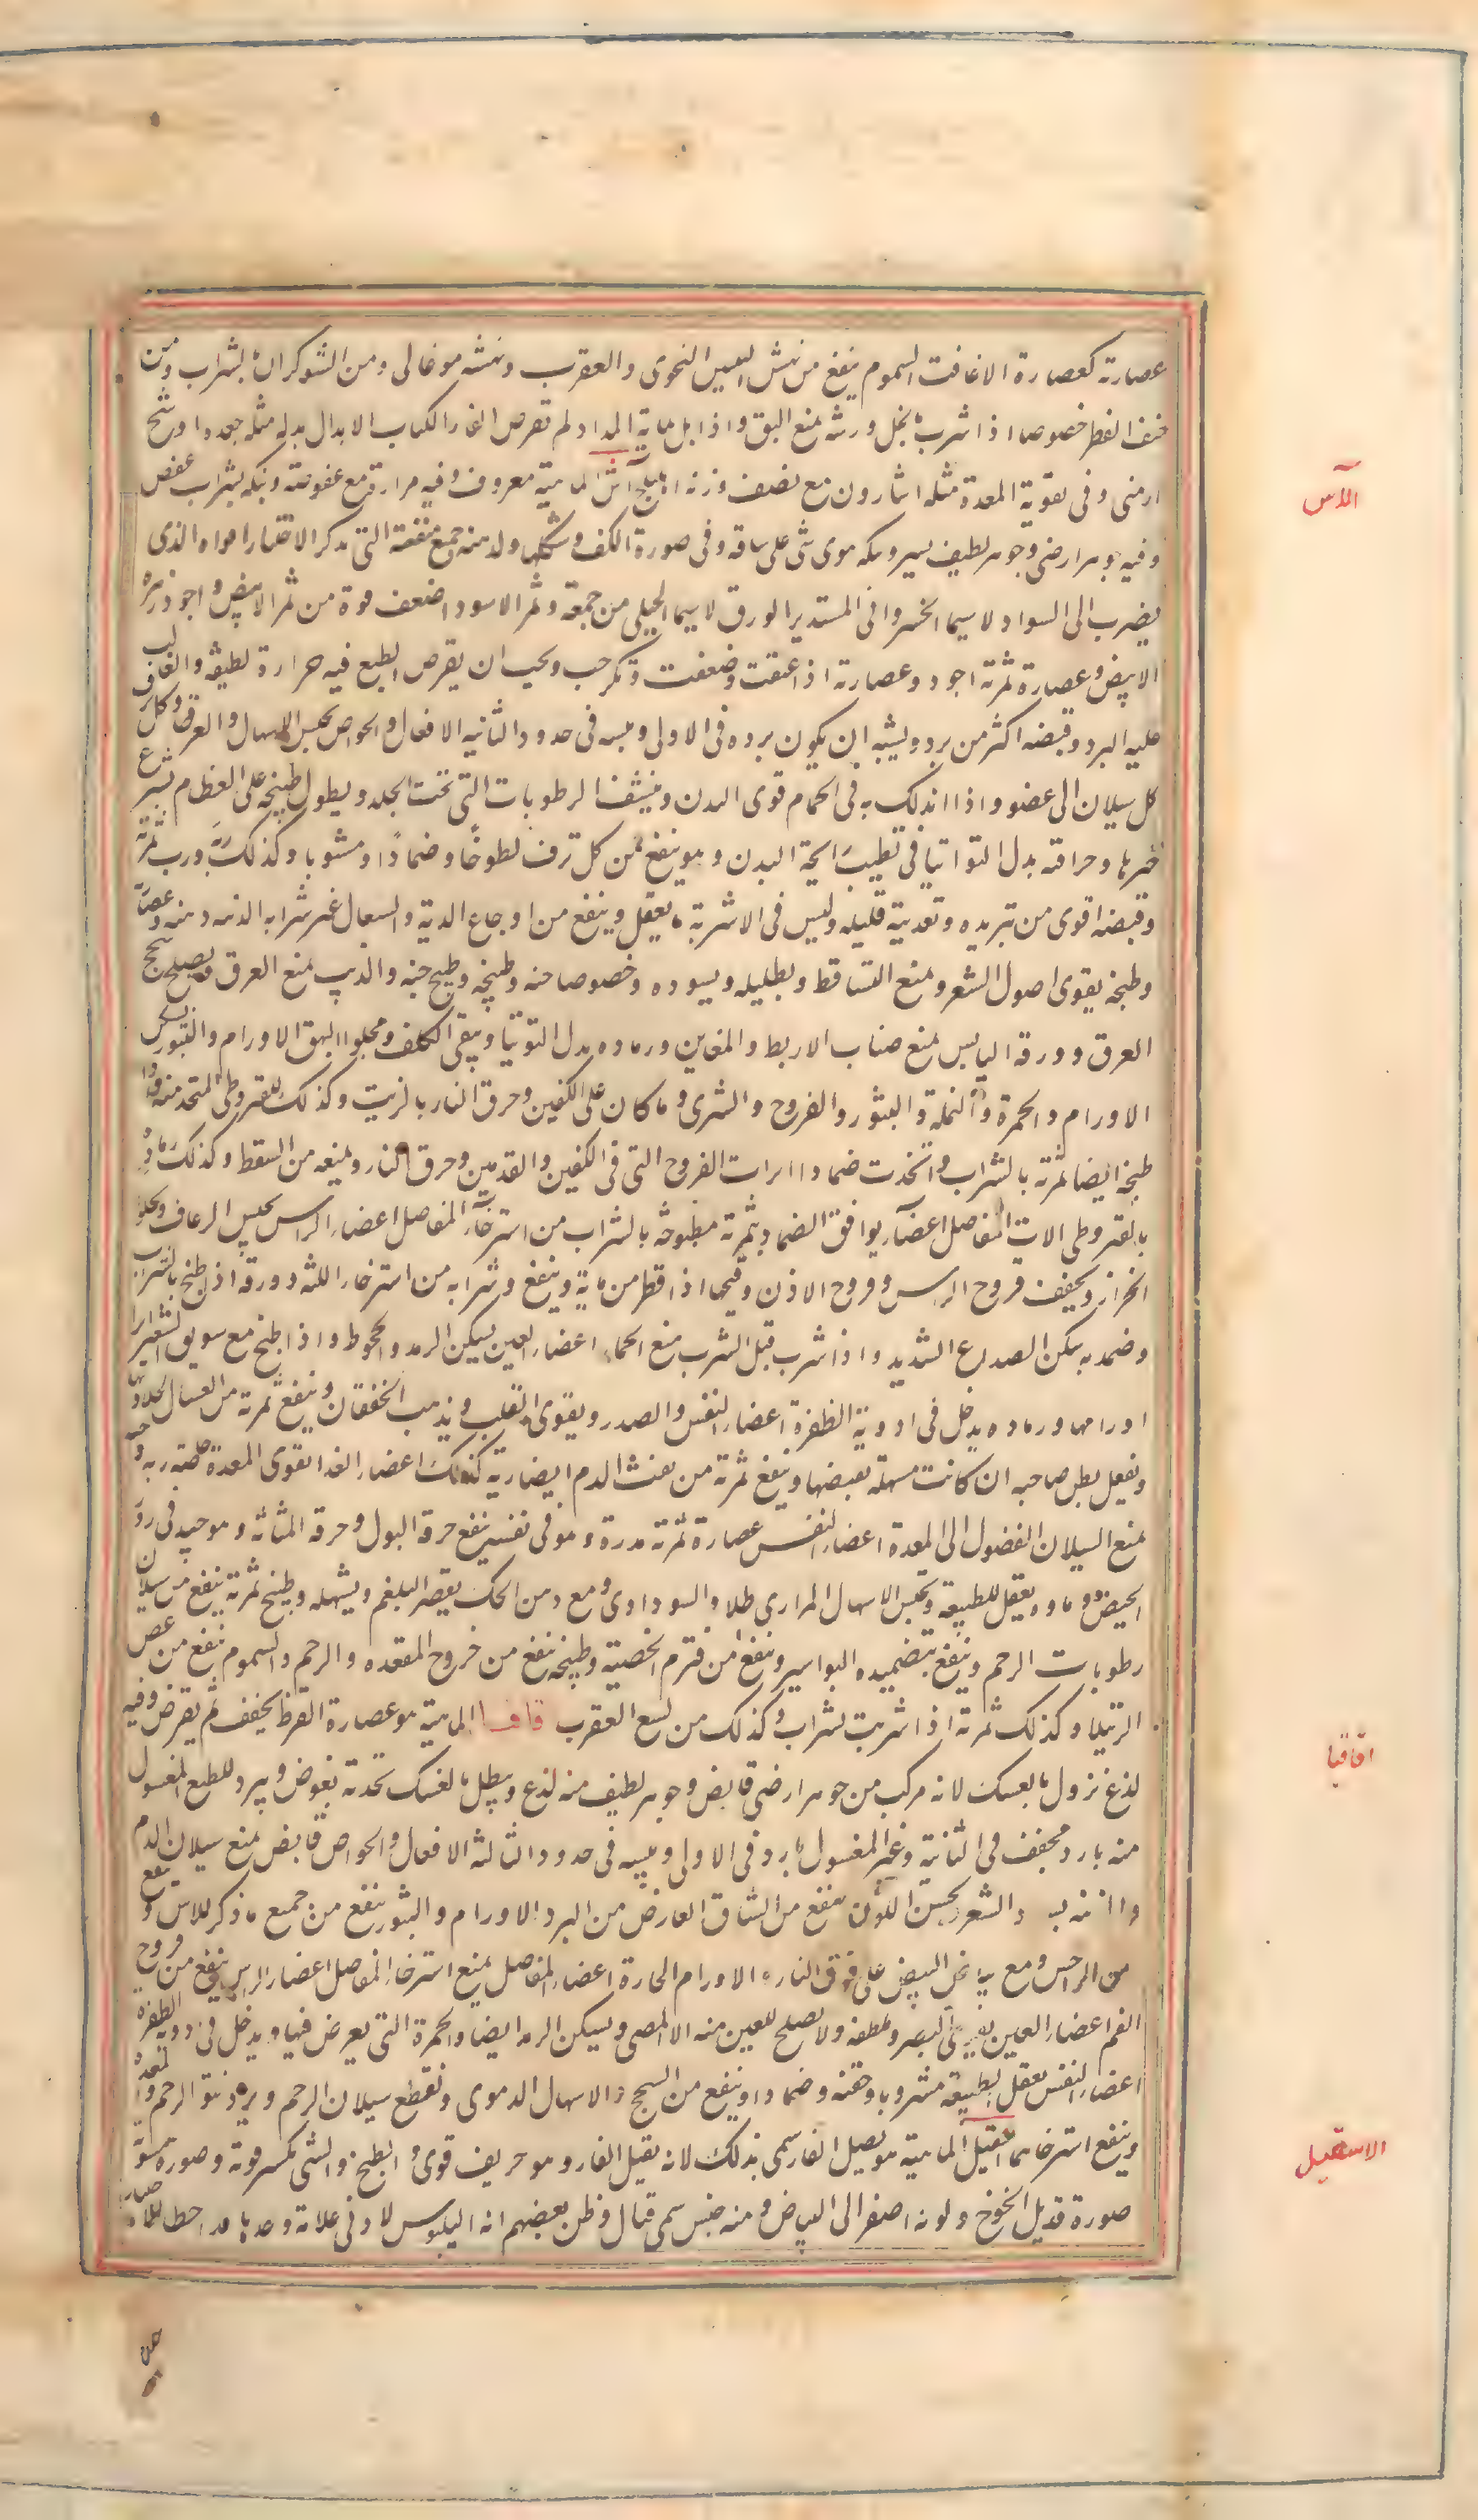 عصارته كعصارة الاغافت السموم ينفع من نهش التنين النحوى والعقرب ونهشه موغالى ومن الشوكران بشراب ومن
خنق الفطر خصوصا اذا شرب بخل ورشه يمنع البق واذا بل بمايه المداد لم تقرض الفار الكتاب الابدال بدله مثله جعدة او شيح
ارمنى وفى تقوية المعدة مثله اشارون مع نصف وزنه اهليلج اس الماهية معروف وفيه مرارة مع عفوصة وبنكه بشراب عفص
وفيه جوهر ارضى وجوهر لطيف يسير وبنكه هوى شى على ساقه وفى صورة الكف وشكلها وله منه جميع منفعة التى يذكر الاختيار اقواه الذى
يضرب الى السواد لاسيما الخسروانى المستدير الورق لاسيما الجبلى من جمعة وثمر الاسود اضعف قوة من ثمر الابيض واجود زهره
الابيض وعصارة ثمرته اجود وعصارته اذا عتقت وضعفت وتكرجت ويجب ان يقرص الطبع فيه حرارة لطيفة والغالب
عليه البرد وقبضه اكثر من برده ويشبه ان يكون برده فى الاولى ويبسه فى حدود الثانيه الافعال والخواص يحبس الاسهال والعرق وكل
كل سيلان الى عضو واذا اندلك به فى الحمام قوى البدن وينشف الرطوبات التى تحت الجلد ويطول طبيخه على العظام يسرع
جبرها وحراقته بدل التوتيا فى تطييب رايحة البدن وهو ينفع من كل نزف لطوخا وضمادا ومشروبا وكذلك ربه ورب ثمرته
وقبضه اقوى من تبريده وتغذيته قليله وليس فى الاشربة ما يعقل وينفع من اوجاع الرية والسعال غير شرابه الدنه دهنه وعصارته
وطبخه يقوى اصول الشعر ويمنع التساقط ويطيله ويسوده وخصوصا حبه وطبيخه وطبيخ حبه والدبيب يمنع العرق ويصلح سحج
العرق وورقه اليابس يمنع صناب الاربط والمغابن ورماده بدل التوتيا وينقى الكلف ويجلوا البهق الاورام والبثور يسكن
الاورام والحمرة والنملة والبثور والقروح والشرى وما كان على الكفين وحرق النار بالزيت وكذلك القيروطى المتخذ منه واذا
طبخ ايضا ثمرته بالشراب واتخذت ضمادا ابرات القروح التى فى الكفين والقدمين وحرق النار ويمنعه من التنفط وكذلك رماده
بالقيروطى الات المفاصل اعضا يوافق الضماد بثمرته مطبوخة بالشراب من استرخاء المفاصل اعضاء الراس يحبس الرعاف ويجلو
الحزاز ويجفف قروح الراس وقروح الاذن وقيحها اذا قطر من مايه وينفع شرابه من استرخاء اللثه وورقه اذا طبخ بالشراب
وضمد به سكن الصداع الشديد واذا شرب قبل الشرب منع الخمار اعضاء العين يسكن الرمد والجحوظ واذا طبخ مع سويق الشعير ابرا
اورامها ورماده يدخل فى ادوية الظفرة اعضاء النفس والصدر ويقوى القلب ويذهب الخفقان وينفع ثمرته من السعال لحلاوتها
ويعقل بطن صاحبه ان كانت مسهلة بعضها وينفع ثمرته من نفث الدم ايضا ربه كذلك اعضاء الغذا يقوى المعدة خاصة ربه وحبه
يمنع السيلان الفضول الى المعدة اعضاء النفس عصارة ثمرته مدرة وهو فى نفسه ينفع حرقة البول وحرقة المثانه وهو جيد فى رد
الحيض وماوه يعقل الطبيعة ويحبس الاسهال المرارى طلا والسوداوى ومع دهن الحل يعصر البلغم ويسهله وطبيخ ثمرته ينفع من سيلان
رطوبات الرحم وينفع بتضميده البواسير وينفع من ورم الخصية وطبيخه ينفع من خروج المقعده والرحم والسموم ينفع من عض
الرتيلا وكذلك ثمرته اذا شربت بشراب وكذلك من لسع العقرب قاقيا الماهية هو عصارة القرظ يجفف ثم يقرض وفيه
لذع نزول بالغسل لانه مركب من جوهر ارضى قابض وجوهر لطيف منه لذع ويبطل بالغسل حدته يغوص ويبرد للطبع المغسول
منه بارد مجفف فى الثانية وغير المغسول بارد فى الاولى ويبسه فى حدود الثالثة الافعال والخواص قابض يمنع سيلان الدم
والشعر يحسن اللون ينفع من الشقاق العارض من البرد الاورام والبثور ينفع من جميع ما ذكر للاس وينفع
من الداحس ومع بياض البيض على حرق النار الاورام الحارة اعضاء المفاصل يمنع استرخاء المفاصل اعضاء الراس ينفع من قروح
الفم اعضاء العين يقوى البصر ويلطفه ولا يصلح للعين منه الا المصرى ويسكن الرمد ايضا والحمرة التى يعرض فيها ويدخل فى ادوية الظفرة
اعضاء النفس يعقل الطبيعة مشروبا وحقنه وضمادا وينفع من السحج والاسهال الدموى ويقطع سيلان الرحم ويرد نتو الرحم والمقعدة
وينفع استرخاهما اسقيل الماهية هو بصيل الفار سمى بذلك لانه يقتل الفار وهو حريف قوى والطبخ والشى يكسر قوته وصورة مشوية
صورة قديل الخوخ ولونه اصفر الى البياض ومنه جنس سمى قتال وظن بعضهم انه البلبوس
الآس
اقاقيا
الاسقيل